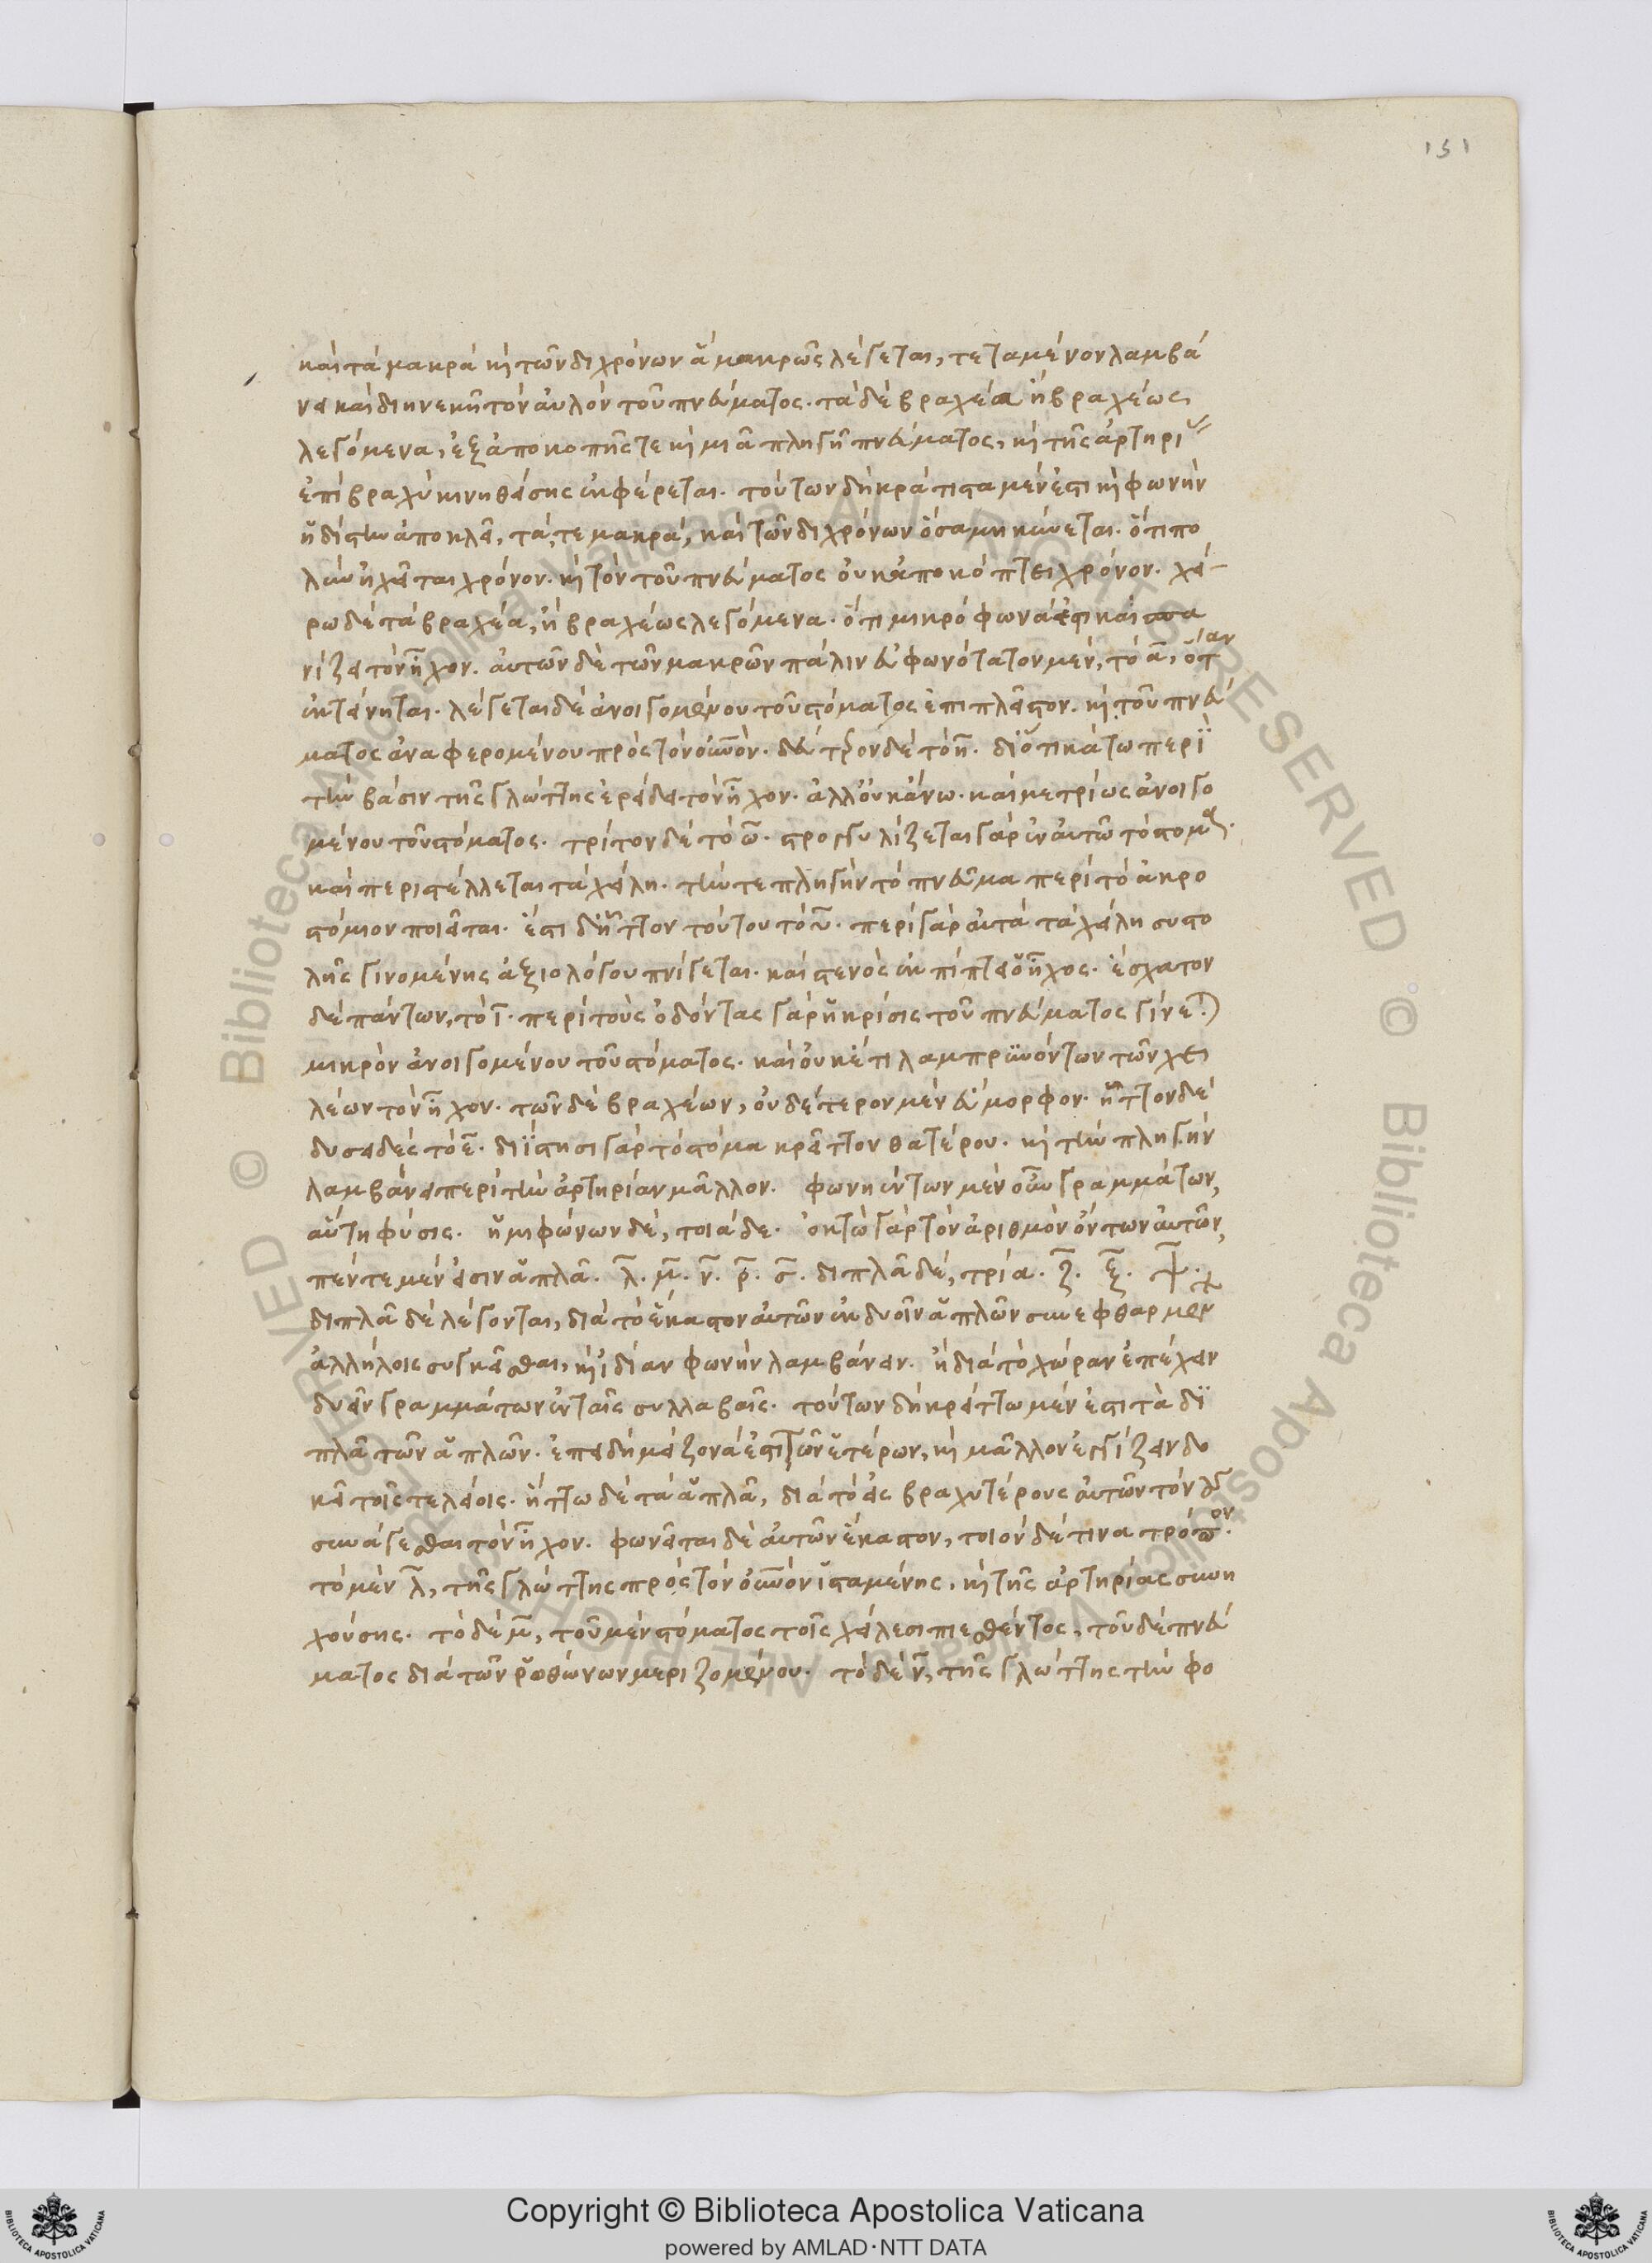 151
καὶ τὰ μακρὰ κὶ τῶν διχρόνων ἃ μακρῶς λέγεται, τεταμένον λαμβά
νει καὶ διηνεκῆ τὸν αὐλὸν τοῦ πνεύματος. τὰ δὲ βραχέα ἢ βραχέως
λεγόμενα, ἐξ ἀποκοπῆς τε κὶ μιᾶ πληγῆ πνεύματος, κὶ τῆς ἀρτηρί
ἐπὶ βραχὺ κινηθείσης ἐκφέρεται. τούτων δὴ κράτιστα μέν ἐστι κὶ φωνὴν
ἡδίστην ἀποτελεῖ, τά τε μακρά, καὶ τῶν διχρόνων ὅσα μηκύνεται. ὅτι πο
λὺν ἠχεῖται χρόνον. κὶ τὸν τοῦ πνεύματος οὐκ ἀποκόπτει χρόνον. χεί
ρω δὲ τὰ βραχέα, ἢ βραχέως λεγόμενα. ὅτι μικρόφωνά ἐστι καὶ σπα
νίζει τὸν ἦχον. αὐτῶν δὲ τῶν μακρῶν πάλιν εὐφωνότατον μὲν, τὸ α, ὅταν
ἐκτείνηται. λέγεται δὲ ἀνοιγομένου τοῦ στόματος ἐπὶ πλεῖστον. κὶ τοῦ πνεύ
ματος ἀναφερομένου πρὸς τὸν οὐνόν. δεύτρον δὲ τὸ η. διότι κάτω περὶ
τὴν βάσιν τῆς γλώττης ἐρείδει τὸν ἦχον. ἀλλ' οὐκ ἄνω. καὶ μετρίως ἀνοιγο
μένου τοῦ στόματος. τρίτον δὲ τὸ ω. στρογγυλίζεται γὰρ ἐν αὐτῶ τὸ στόμα.
καὶ περιστέλλεται τὰ χείλη. τήν τε πληγὴν τὸ πνεῦμα περὶ τὸ ἀκρο
στόμιον ποιεῖται. ἔστι δ' ἧττον τούτου τὸ υ. περὶ γὰρ αὐτὰ τὰ χείλη συστο
λῆς γινομένης ἀξιολόγου πνίγεται. καὶ στενὸς ἐκπίπτει ὁ ἦχος. ἔσχατον
δὲ πάντων, τὸ ι. περὶ τοὺς ὀδόντας γὰρ ἡ κρίσις τοῦ πνεύματος γίνεται
μικρὸν ἀνοιγομένου τοῦ στόματος. καὶ οὐκ ἔτι λαμπρυνόντων τῶν χει
λέων τὸν ἦχον. τῶν δὲ βραχέων, οὐδέτερον μὲν εὔμορφον. ἧττον δὲ
δυσειδὲς τὸ ε. διΐστησι γὰρ τὸ στόμα κρεῖττον θατέρου. κὶ τὴν πληγὴν
λαμβάνει περὶ τὴν ἀρτηρίαν μᾶλλον. φωνηέντων μὲν οὖν γραμμάτων,
αὕτη φύσις. ἡμιφώνων δὲ, τοιάδε. ὀκτὼ γὰρ τὸν ἀριθμὸν ὄντων αὐτῶν,
πέντε μέν εἰσιν ἁπλᾶ. λ. μ. ν. ρ. σ. διπλᾶ δὲ, τρία. ζ. ξ. ψ.
διπλᾶ δὲ λέγονται, διὰ τὸ ἕκαστον αὐτῶν ἐκ δυοῖν ἁπλῶν συνεφθαρμεν
ἀλλήλοις συγκεῖσθαι, κὶ ἰδίαν φωνὴν λαμβάνειν. ἢ διὰ τὸ χώραν ἐπέχειν
δυεῖν γραμμάτων ἐν ταῖς συλλαβαῖς. τούτων δὴ κρείττω μέν ἐστι τὰ δι
πλᾶ τῶν ἁπλῶν. ἐπειδὴ μείζονά ἐστι τῶν ἑτέρων, κὶ μᾶλλον ἐγγίζειν δο
κεῖ τοῖς τελείοις. ἥττω δὲ τὰ ἁπλᾶ, διὰ τὸ εἰς βραχυτέρους αὐτῶν τόνους
συνάγεσθαι τὸν ἦχον. φωνεῖται δὲ αὐτῶν ἕκαστον, τοιόνδέ τινα τρόπον.
τὸ μὲν λ, τῆς γλώττης πρὸς τὸν οὐνὸν ἱσταμένης, κὶ τῆς ἀρτηρίας συνη
χούσης. τὸ δὲ μ, τοῦ μὲν στόματος τοῖς χείλεσι πιεσθέντος, τοῦ δὲ πνεύ
ματος διὰ τῶν ῥωθώνων μεριζομένου. τὸ δὲ ν, τῆς γλώττης τὴν φο
Copyright © Biblioteca Apostolica Vaticana
powered by AMLAD·NTT DATA